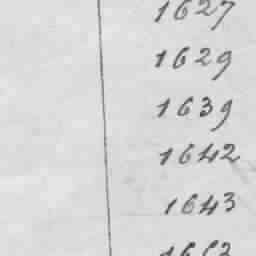 1627
1629
1639
1642
1643